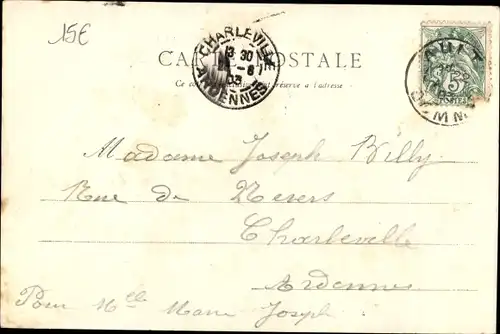 15€
CARTE POSTALE
Ce côté est exclusivement réservé à l'adresse
CHARLEVILLE
13 30
6
03
ARDENNES
5
POSTES
Madame Joseph Billy
Rue de Nevers
Charleville
Ardennes
Pour Melle Marie Joseph